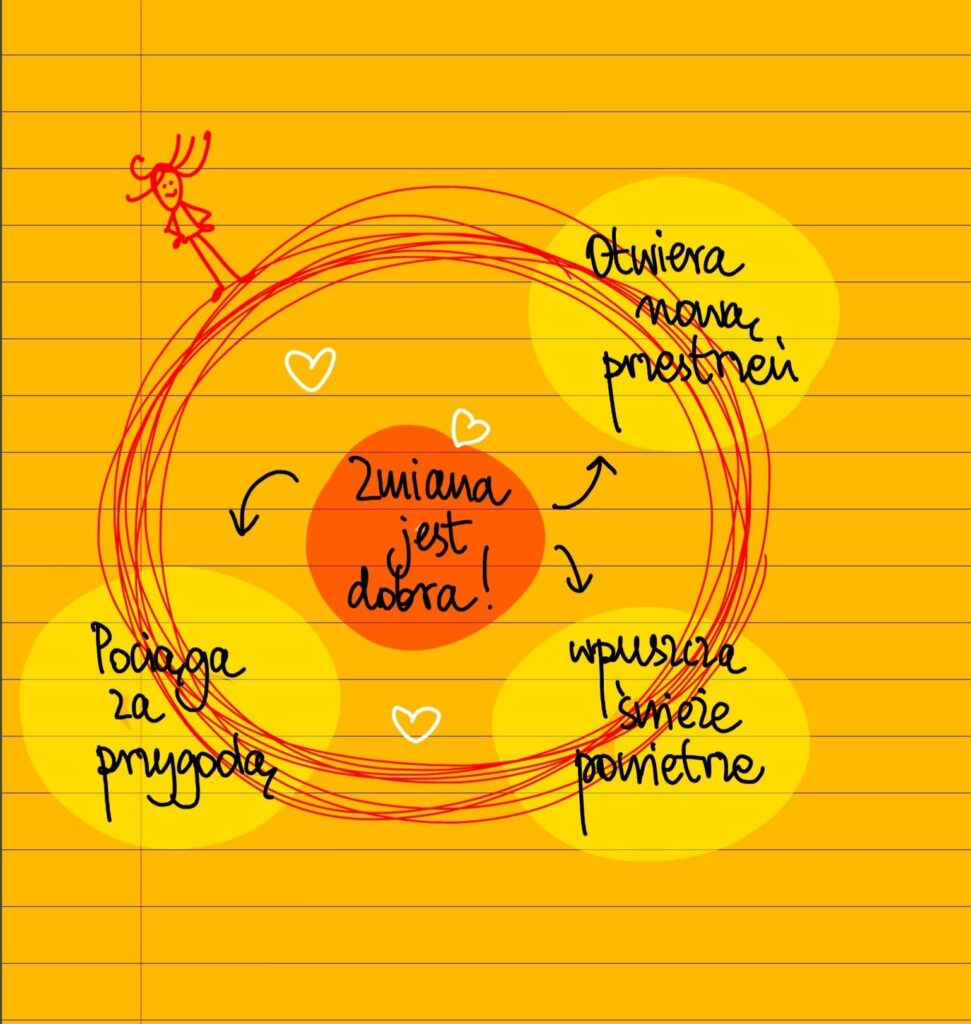 Zmiana
jest
dobra!
Otwiera
nową
przestrzeń
wpuszcza
świeże
powietrze
Pociąga
za
przygodą